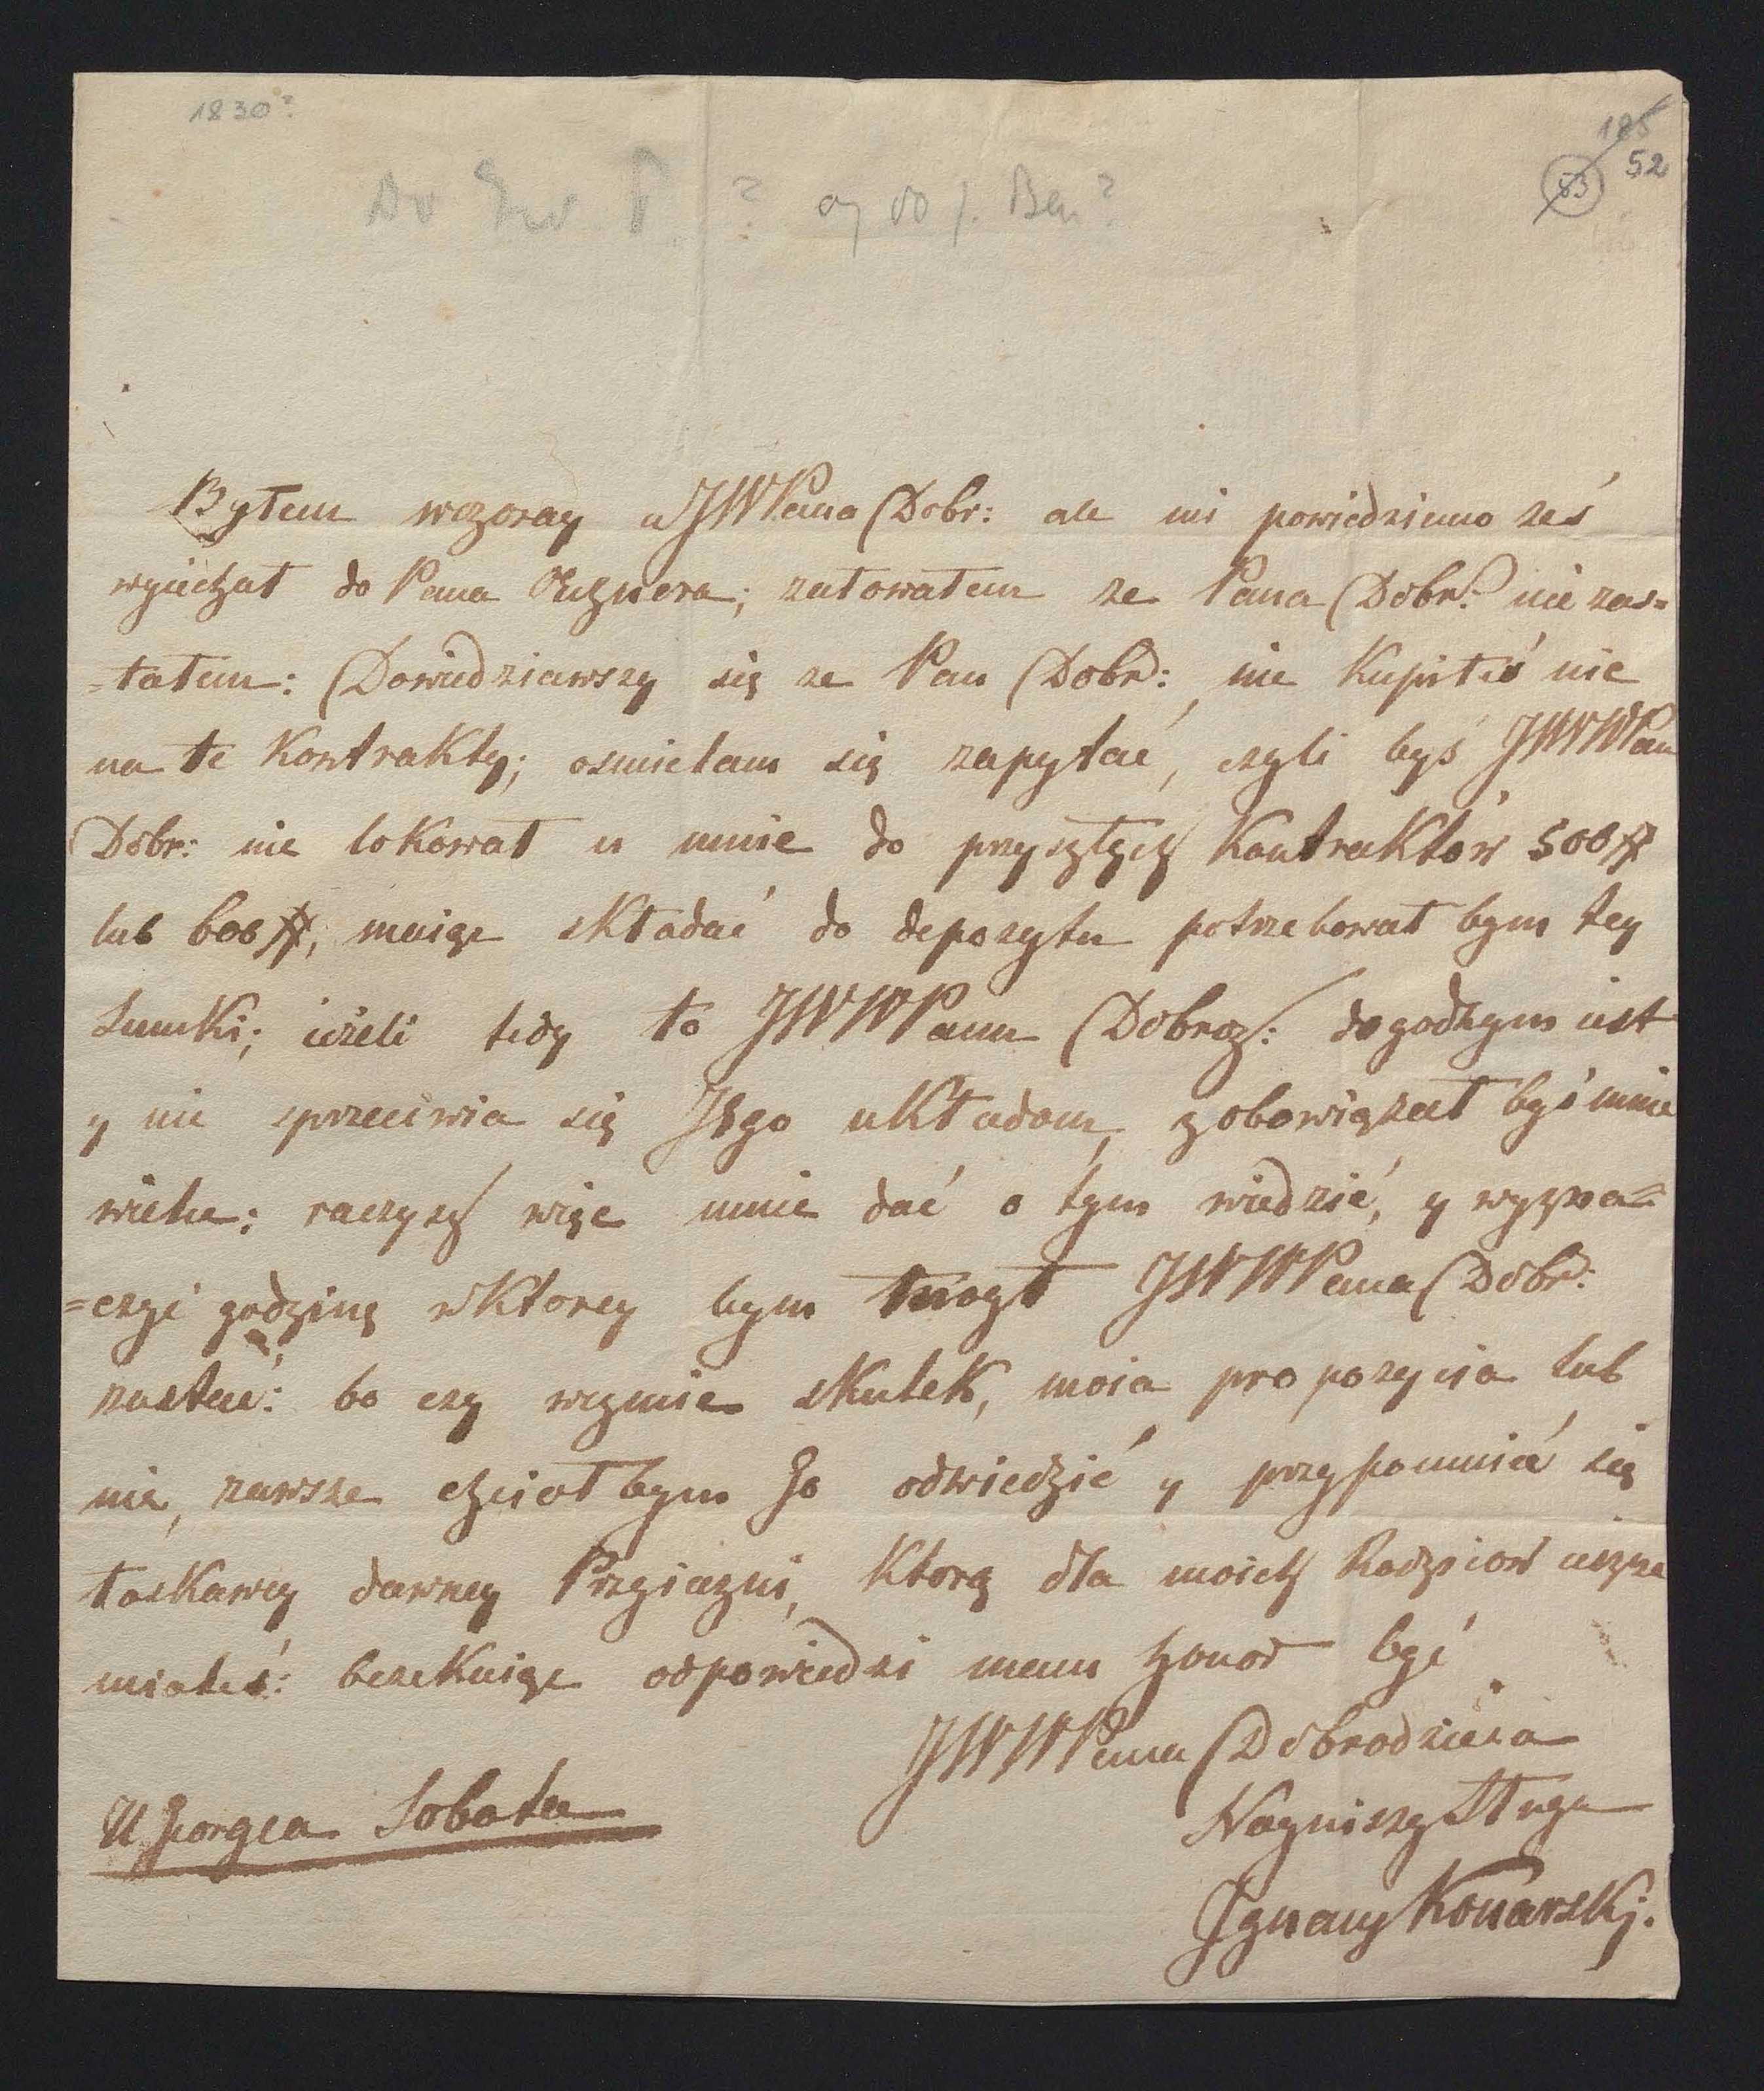 1830?
185
52
53
Do ? czy do J. Ben?
Byłem wczoray u JWPana Dobr: ale mi powiedziano żeś
wyiechał do Pana żałowałem że Pana Dobr: nie zas=
=tałem: Dowiedziawszy się że Pan Dobr: nie Kupiłeś nic
na te Kontrakty; osmielam się zapytać, czyli byś JWWPan
Dobr: nie loKował u mnie do przyszłych Kontraktów 500#
lub 600#, maiąc sKładać do depozytu potrzebował bym tey
SumKi; ieżeli tedy to JWWPanu Dobrodz: dogodnym iest
y nie sprzeciwia się Jego uKładom, zobowiązał byś mnie
wiele; raczysz więc mnie dać o tym wiedzieć, y wyzna=
=czyć godzinę w Ktorey bym mógł JWWPana Dobr:
zastać: bo czy wezmie sKuteK, moia propozycia lub
nie, zawsze chciał bym Go odwiedzić y przypomnieć się
łasKawey dawney Przyiazni, Ktorą dla moich Rodziców ieszcze
miałeś: oczeKuiąc odpowiedzi mam honor być
JWWPana Dobrodzieia
Nayniższy Sługa
Ignacy KonarsKi.
U Georgea Sobota